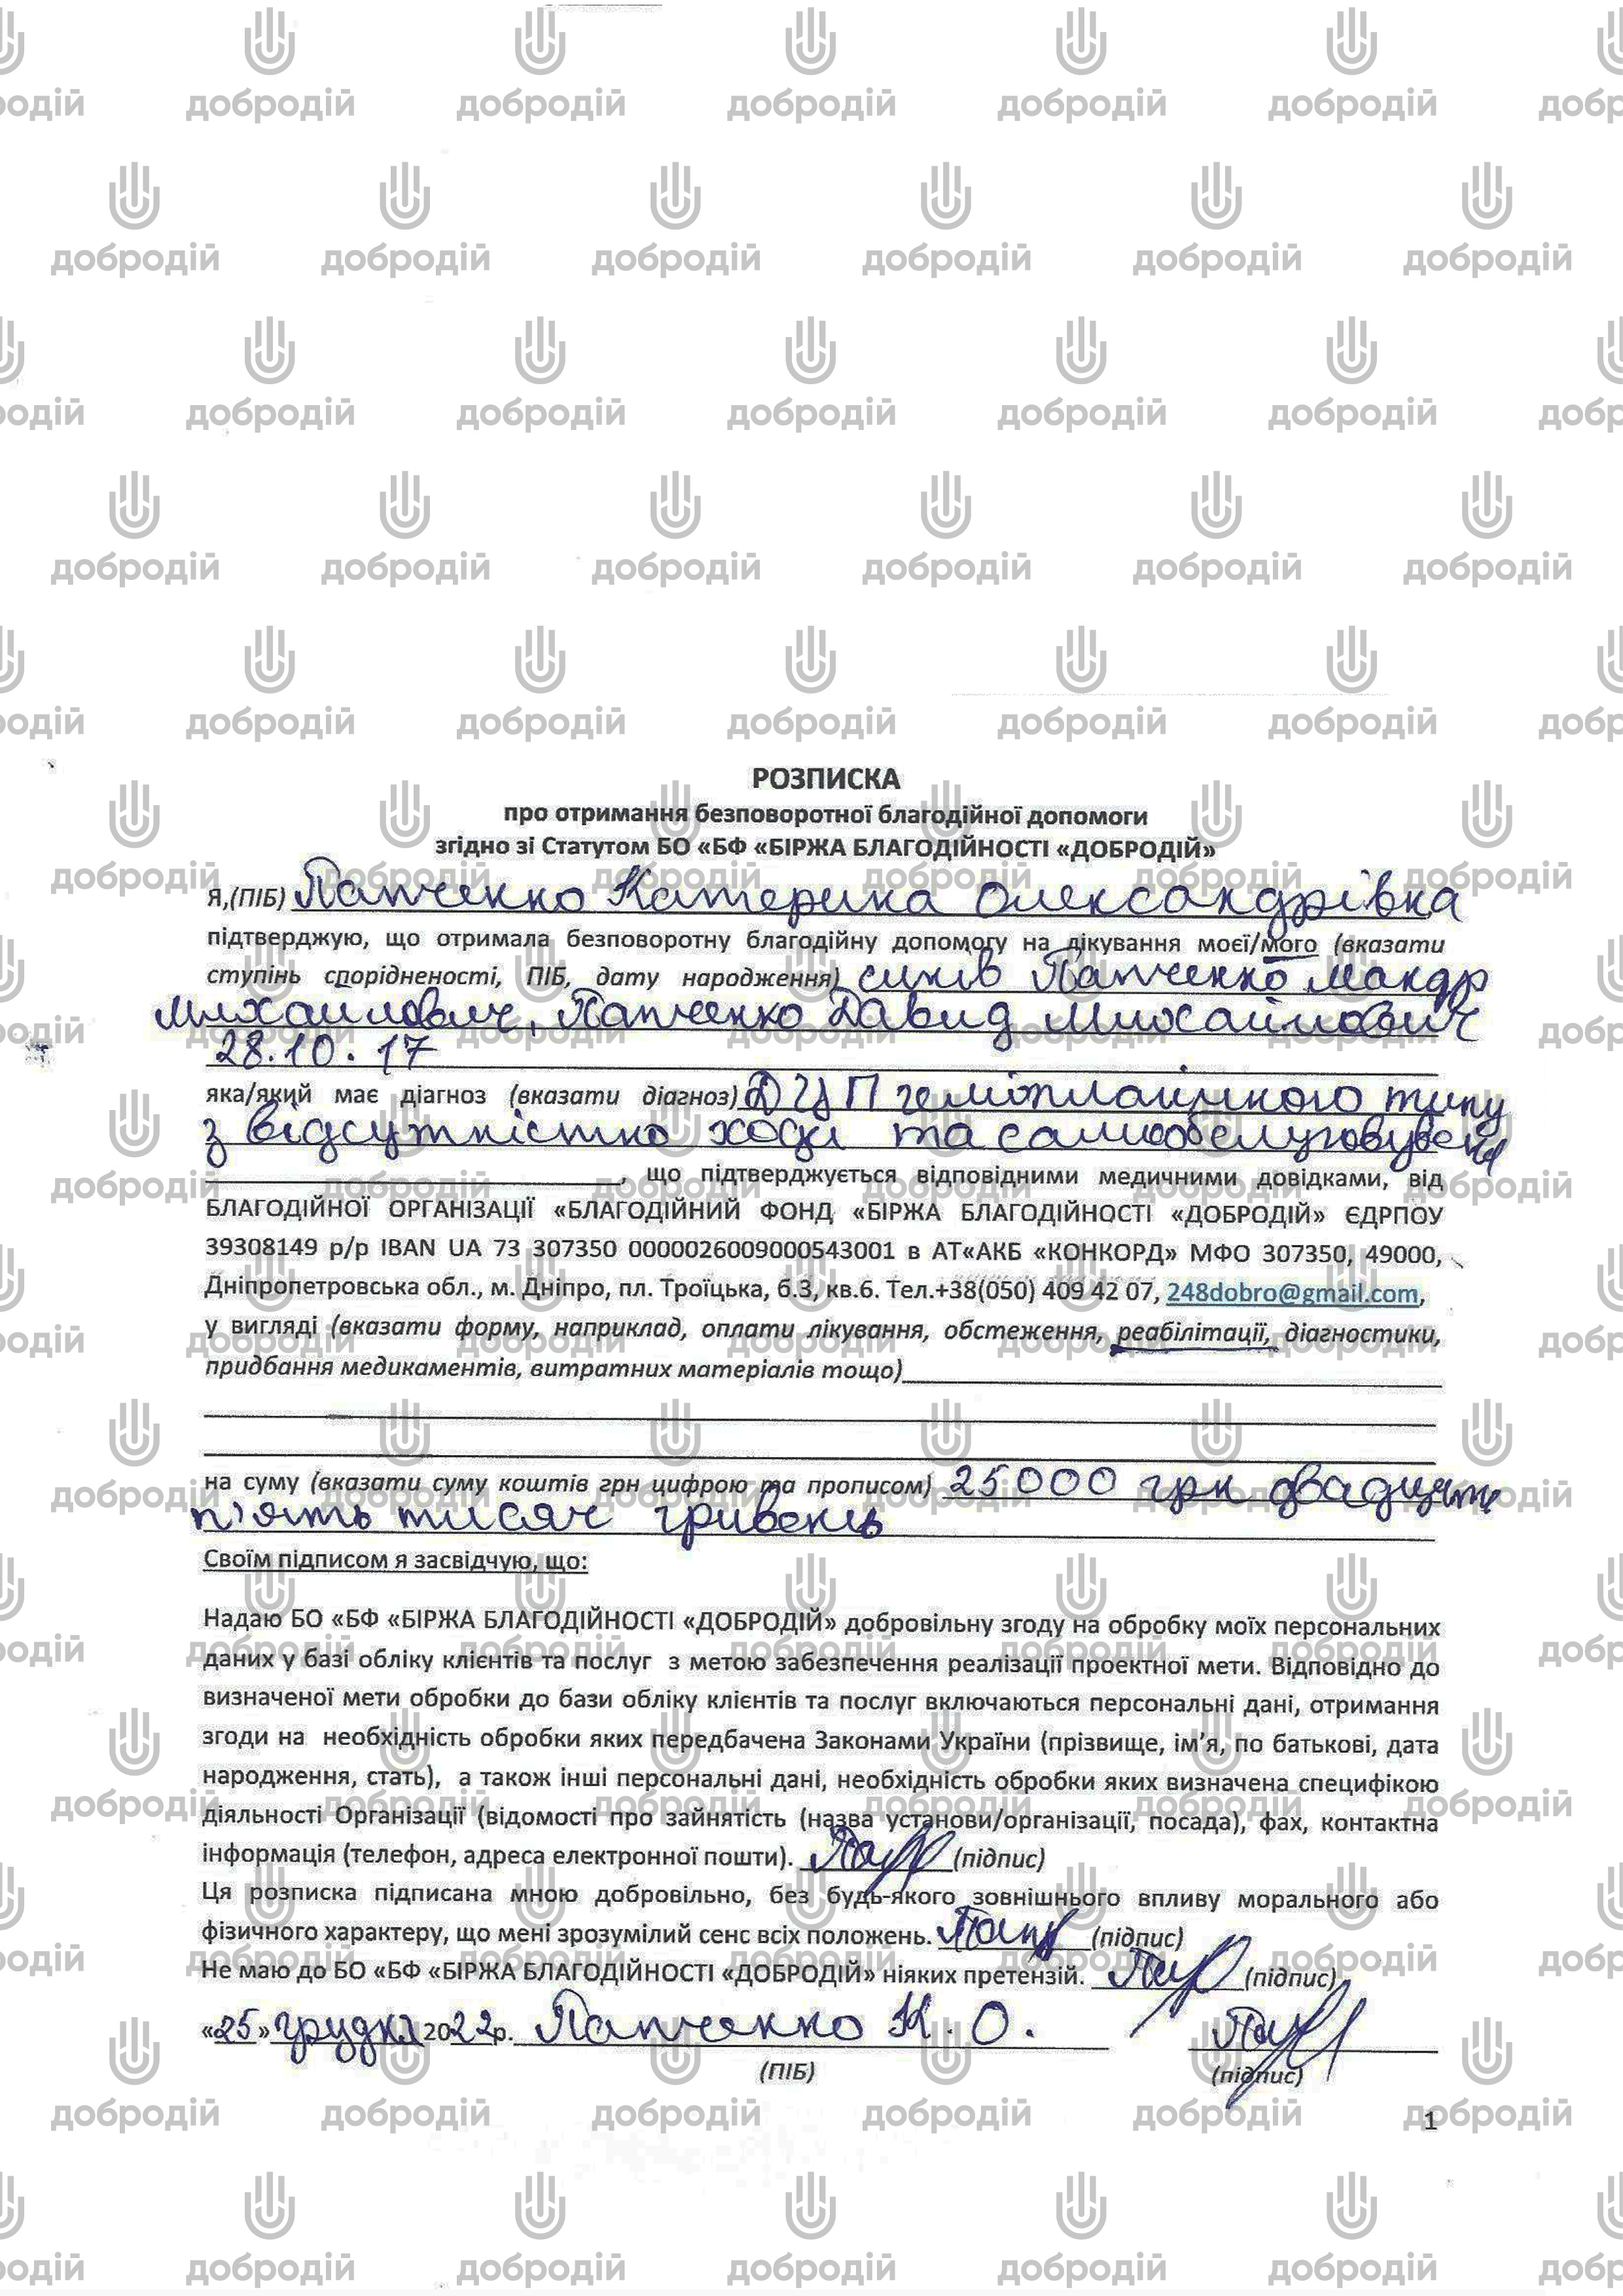 РОЗПИСКА
про отримання безповоротної благодійної допомоги
згідно зі Статутом БО «БФ «БІРЖА БЛАГОДІЙНОСТІ «ДОБРОДІЙ»
Я,(ПІБ) Папченко Катерина Олександрівка
підтверджую, що отримала безповоротну благодійну допомогу на лікування моєї/мого (вказати
ступінь спорідненості, ПІБ, дату народження) синів Папченко Макар
Михайлович, Папченко Давид Михайлович
28.10.17
яка/який має діагноз (вказати діагноз) ДЦП геміплаїчного типу
з відсутністю ходи та самообслуговування
, що підтверджується відповідними медичними довідками, від
БЛАГОДІЙНОЇ ОРГАНІЗАЦІЇ «БЛАГОДІЙНИЙ ФОНД «БІРЖА БЛАГОДІЙНОСТІ «ДОБРОДІЙ» ЄДРПОУ
39308149 р/р IBAN UA 73 307350 0000026009000543001 в АТ«АКБ «КОНКОРД» МФО 307350, 49000,
Дніпропетровська обл., м. Дніпро, пл. Троїцька, б.3, кв.6. Тел.+38(050) 409 42 07, 248dobro@gmail.com,
у вигляді (вказати форму, наприклад, оплати лікування, обстеження, реабілітації, діагностики,
придбання медикаментів, витратних матеріалів тощо)
на суму (вказати суму коштів грн цифрою та прописом) 25000 грн двадцять
п'ять тисяч гривень
Своїм підписом я засвідчую, що:
Надаю БО «БФ «БІРЖА БЛАГОДІЙНОСТІ «ДОБРОДІЙ» добровільну згоду на обробку моїх персональних
даних у базі обліку клієнтів та послуг з метою забезпечення реалізації проектної мети. Відповідно до
визначеної мети обробки до бази обліку клієнтів та послуг включаються персональні дані, отримання
згоди на необхідність обробки яких передбачена Законами України (прізвище, ім'я, по батькові, дата
народження, стать), а також інші персональні дані, необхідність обробки яких визначена специфікою
діяльності Організації (відомості про зайнятість (назва установи/організації, посада), фах, контактна
інформація (телефон, адреса електронної пошти). (підпис)
Ця розписка підписана мною добровільно, без будь-якого зовнішнього впливу морального або
фізичного характеру, що мені зрозумілий сенс всіх положень. (підпис)
Не маю до БО «БФ «БІРЖА БЛАГОДІЙНОСТІ «ДОБРОДІЙ» ніяких претензій. (підпис)
«25» грудня 2022р. Папченко К. О.
(ПІБ) (підпис)
1
добродій